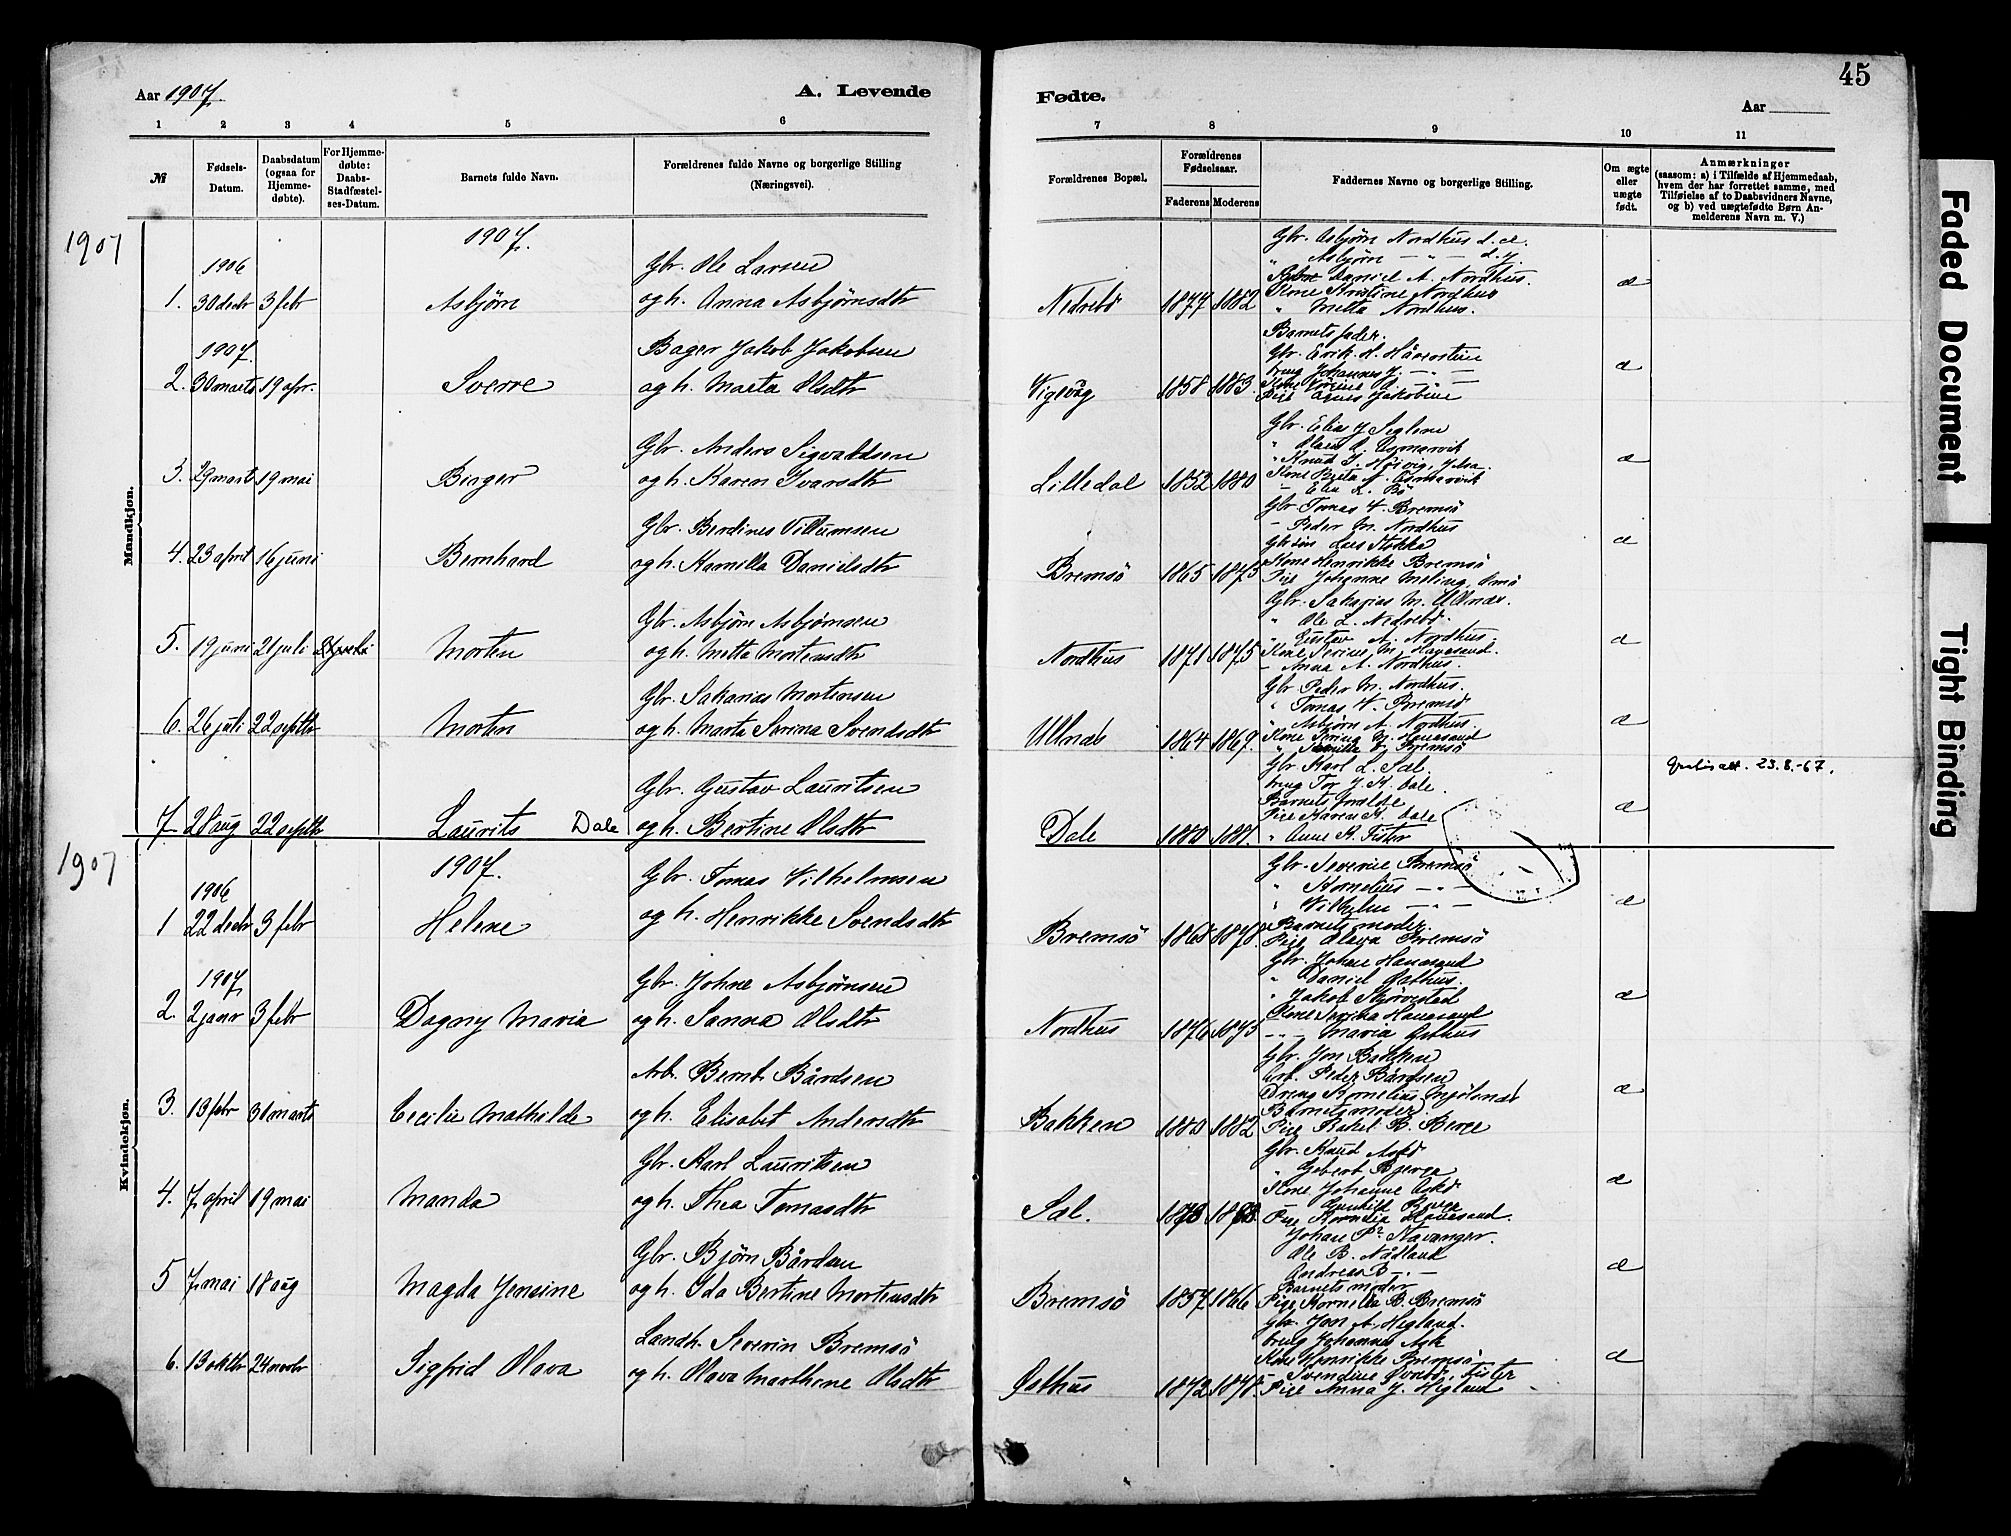 45
Aar 1907.
A. Levende
Fødte.
Aar
1 2 3 4 5 6 7 8 9 10 11
№
Fødsels-
Datum.
Daabsdatum
(ogsaa for
Hjemme-
døbte).
For Hjemme-
døbte:
Daabs-
Stadfæstel-
ses-Datum.
Barnets fulde Navn.
Forældrenes fulde Navne og borgerlige Stilling
(Næringsvei).
Forældrenes Bopæl.
Forældrenes
Fødselsaar.
Faderens Moderens
Faddernes Navne og borgerlige Stilling.
Om ægte
eller
uægte
født.
Anmærkninger
(saasom: a) i Tilfælde af Hjemmedaab,
hvem der har forrettet samme, med
Tilføielse af to Daabsvidners Navne,
og b) ved uægtefødte Børn An-
melderens Navn m. V.)
Mandkjøn.
1907
1907.
1906
1. 30 decbr 3 febr Asbjørn
Gbr. Ole Larsen
og h. Anna Asbjørnsdtr
Nedrebø 1877 1882
Gbr. Asbjørn Nordhus d.æ.
" Asbjørn — " — d.y.
Daniel A. Nordhus.
Kone Kristine Nordhus
" Metta Nordhus.
æ
1907.
2. 30 marts 19 apr. Sverre
Bager Jakob Jakobsen
og h. Marta Olsdtr
Vigevåg 1858 1883
Barnets fader.
Gbr. Erik H. Håvestein
Ung Johannes J. — " —
æ
3. 29 marts 19 mai Birger
Gbr. Anders Sigvaldsen
og h. Karen Ivarsdtr
Lilledal 1852 1880
Gbr. Elias J. Seglem
æ
4. 23 april 16 juni Bernhard
Gbr. Berdines Villumsen
og h. Kamilla Danielsdtr
Bremsø 1865 1873
Gbr Tomas V. Bremsø
- Peder M. Nordhus
Kone Henrikke Bremsø
Pige Johanne Meling, Ømø
æ
5. 19 juni 21 juli Morten
Gbr. Asbjørn Asbjørnsen
og h. Metta Mortensdtr
Nordhus 1871 1875
Gbr. Sakarias M. Ullnæs.
" Ole L. Nedrebø.
" Gustav A. Nordhus.
Kone Serine M. Hauasand.
- Anna A. Nordhus.
æ
6. 26 juli 22 septbr Morten
Gbr. Sakarias Mortensen
og h. Marta Serina Svendsdtr
Ullnæs 1864 1869.
Gbr Peder M. Nordhus.
" Tomas V. Bremsø
" Asbjørn A. Nordhus.
æ
7. 28 aug 22 septbr Laurits Dale
Gbr. Gustav Lauritsen
og h. Bertine Olsdtr
Dale 1880 1881.
Gbr Karl L. Sæl.
Ung Tor J. K. Dale.
Barnets forældre
Pige Karen K. Dale
" Anne A. Fister
æ
Gratisatt. 23.8.-67.
Kvindekjøn.
1907
1907.
1906
1 22 decbr 3 febr Helene
Gbr. Tomas Vilhelmsen
og h. Henrikke Svendsdtr
Bremsø 1868 1870.
Gbr. Severine Bremsø
" Kornelius — " —
" Vilhelm — " —
Barnets moder.
Pige Olava Bremsø
æ
1907
2. 2 januar 3 febr Dagny Maria
Gbr. Johne Asbjørnsen
og h. Sanna Olsdtr
Nordhus 1876 1875
Gbr. Johan Hauasand
" Daniel Østhus.
" Jakob Skjørestad
Kone Serina Hauasand
- " - Maria Østhus
æ
3. 13 febr 31 marts Cecilie Mathilde
Arb. Bernt Bårdsen
og h. Elisabet Andersdtr
Bakken 1880 1882
Gbr. Jon Bakken
Arb. Peder Bårdsen
Dreng Kornelius Mjølsnes
Barnets moder.
Pige Rakel B. Berge
æ
4. 7 april 19 mai Manda
Gbr. Karl Lauritsen
og h. Thea Tomasdtr
Sæl.
Gbr. Knud Askø
" Gabert Bjerga
Kone Johanne Askø
æ
5 7 mai 18 aug Magda Jensine
Gbr. Bjørn Bårdsen
og h. Ida Bertine Mortensdtr
Bremsø 1857 1866
Johan Stavanger.
Ole B. Nådland
Andreas B — " —
Barnets moder
Pige Kornelia B. Bremsø
æ
6. 13 oktbr 24 novbr Sigfrid Olava
Landh. Severin Bremsø
og h. Olava Marthine Olsdtr
Østhus 1872 1878.
Gbr. Jon A. Hegland.
Ung Johannes Ask
Kone Henrikke Bremsø
- Svendine Øvrebø, Fister
Pige Anna J. Hegland
æ
Faded Document
Tight Binding